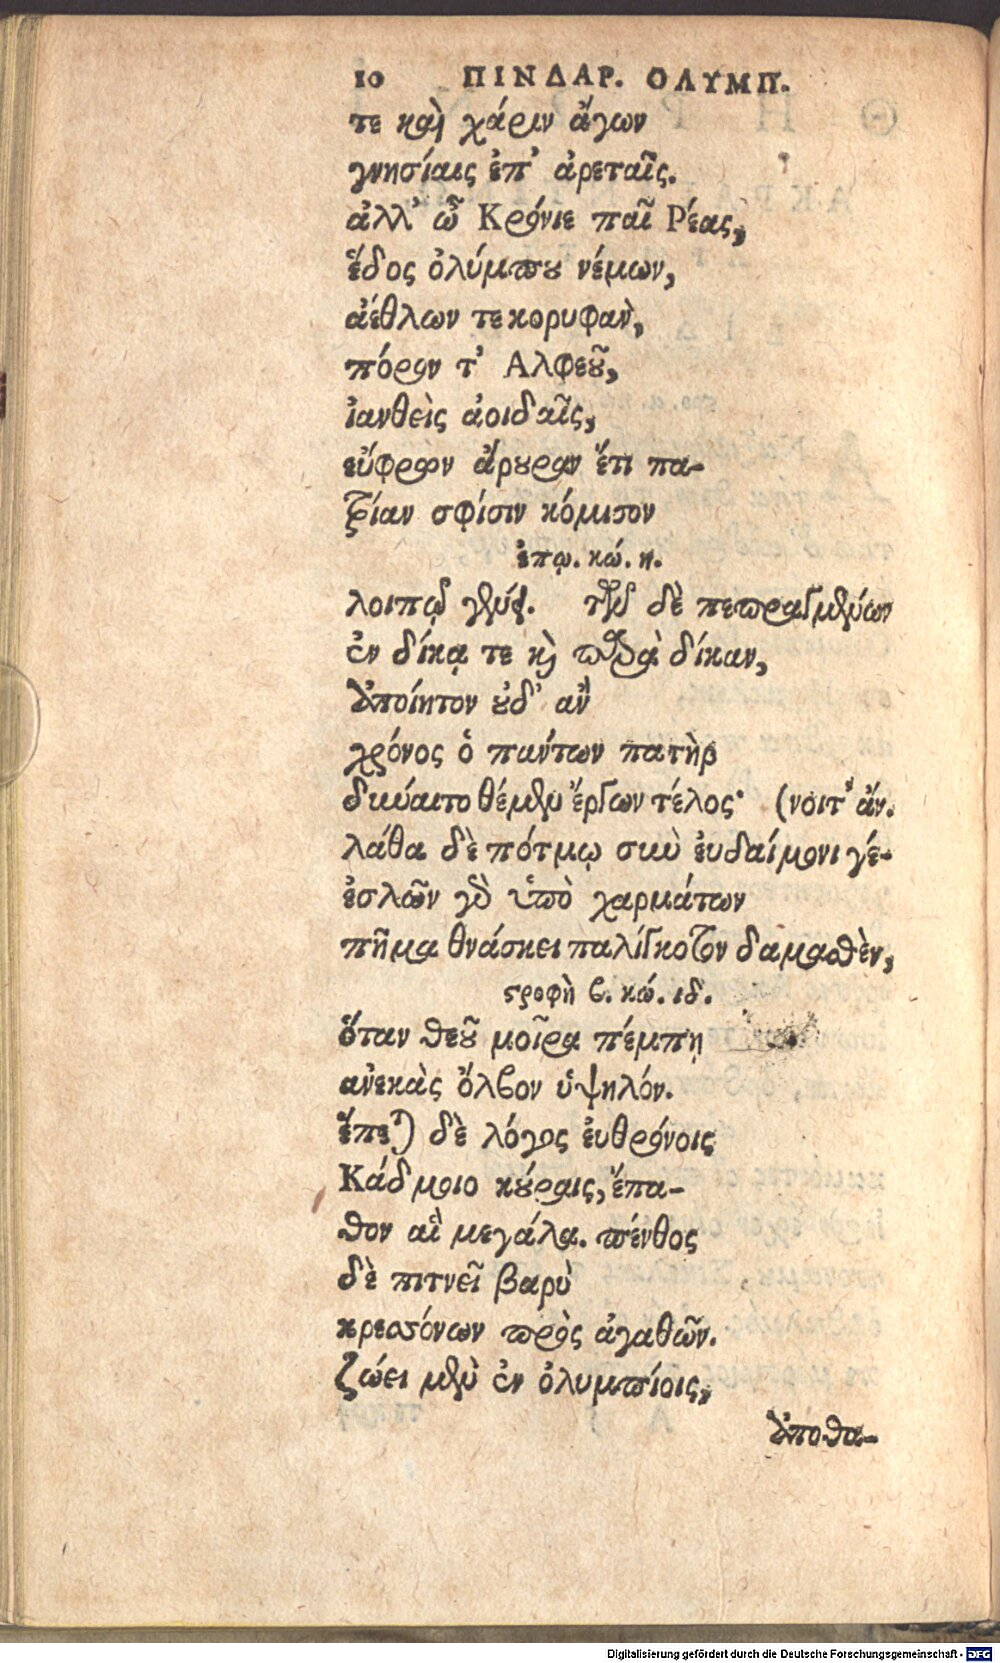 10 ΠΙΝΔΑΡ. ΟΛΥΜΠ.
τε καὶ χάριν ἄγων
γνησίαις ἐπ' ἀρεταῖς.
ἀλλ' ὦ Κρόνιε παῖ Ρέας,
ἕδος ὀλύμπου νέμων,
ἀέθλων τε κορυφαν̀,
πόρον τ' Αλφεοῦ,
ἰανθεὶς ἀοιδαῖς,
εὔφρων ἄρουραν ἔτι πα-
τρίαν σφίσιν κόμισον
ἐπῳ. κώ. η.
λοιπῷ γένει. τῶν δὲ πεπραγμένων
ἐν δίκᾳ τε καὶ παρὰ δίκαν,
ἀποίητον οὐδ' ἂν
χρόνος ὁ πάντων πατὴρ
δύναιτο θέμεν ἔργων τέλος· (νοιτ' ἄν.
λάθα δὲ πότμῳ σὺν ἐυδαίμονι γέ-
ἐσλῶν γὰρ ὑπὸ χαρμάτων
πῆμα θνάσκει παλίγκοτον δαμασθὲν,
στροφὴ β. κώ. ιδ.
ὅταν θεοῦ μοῖρα πέμπῃ
ἀνεκὰς ὄλβον ὑψηλόν.
ἕπεται δὲ λόγος ἐυθρόνοις
Κάδμοιο κούραις, ἔπα-
θον αἳ μεγάλα. πένθος
δὲ πιτνεῖ βαρὺ
κρεσσόνων πρὸς ἀγαθῶν.
ζώει μὲν ἐν ὀλυμπίοις,
ἀποθα-
Digitalisierung gefördert durch die Deutsche Forschungsgemeinschaft - DFG